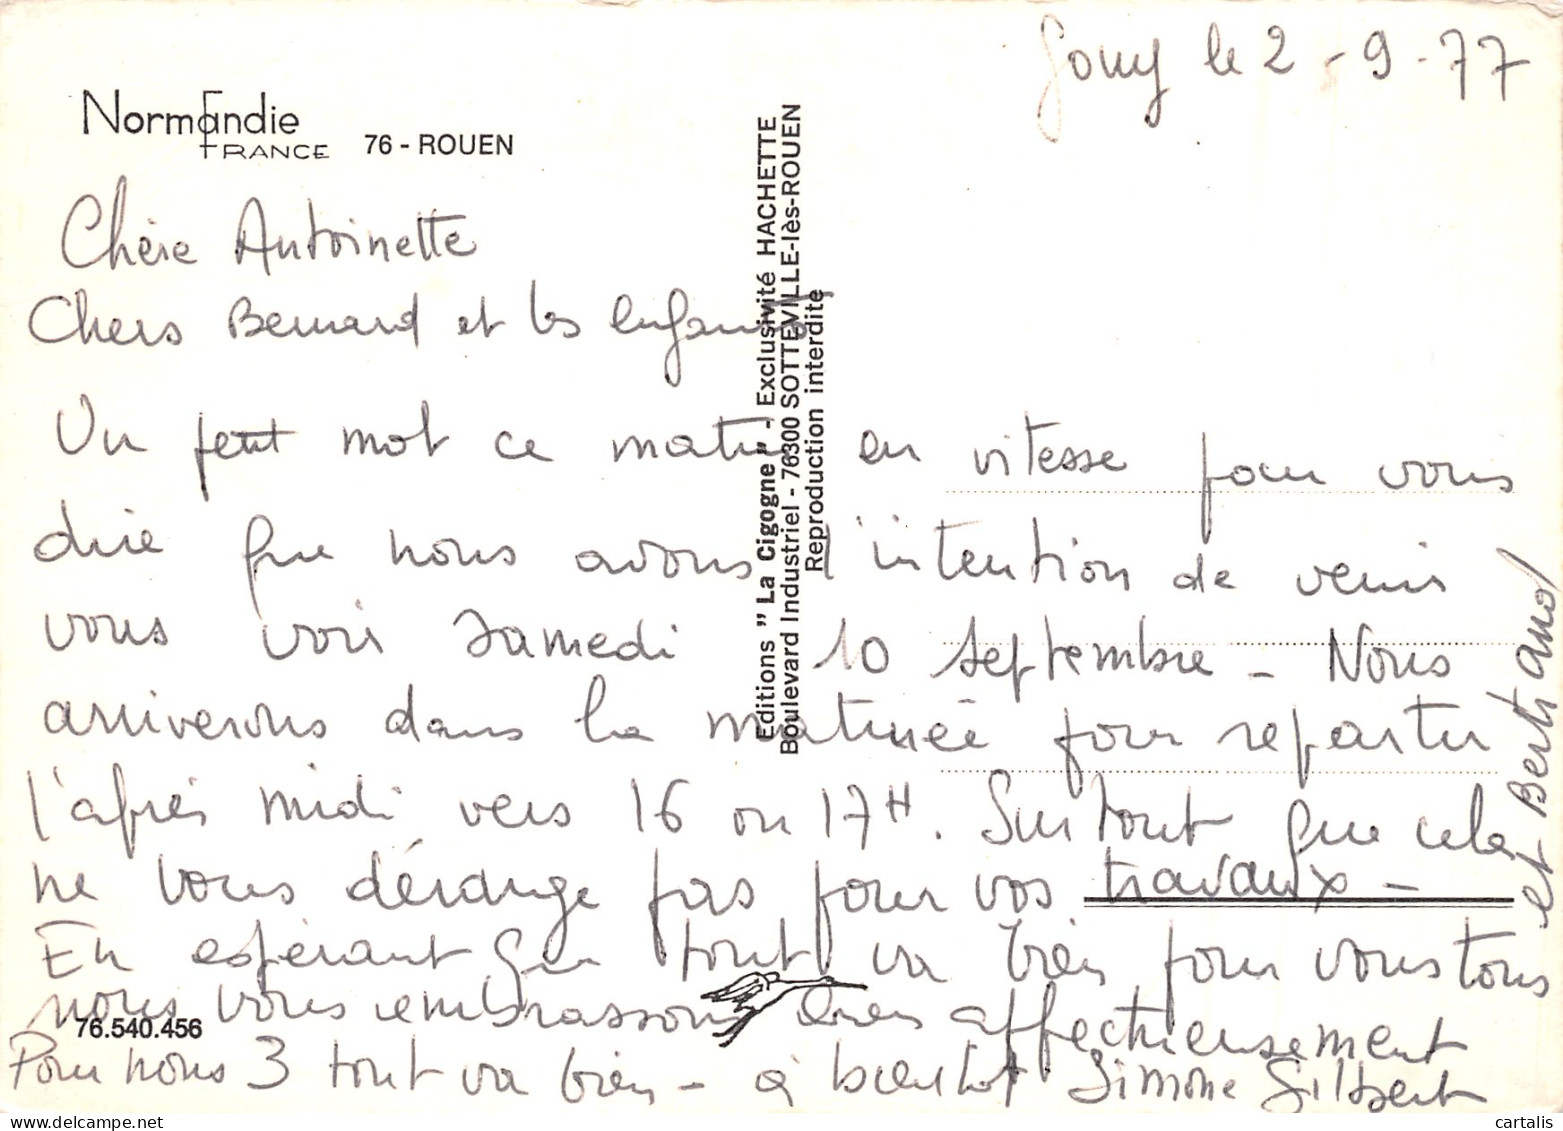 Gouy le 2-9-77
Normandie
FRANCE
76 - ROUEN
Chère Antoinette
Chers Bernard et les enfants
Un petit mot ce matin en vitesse pour vous
dire que nous avons l'intention de venir
vous voir Samedi 10 Septembre - Nous
arriverons dans la matinée pour repartir
l'après midi vers 16 ou 17H. Surtout que cela
ne vous dérange pas pour vos travaux -
En espérant que tout va bien pour vous tous
nous vous embrassons bien affectueusement
Pour nous 3 tout va bien - à bientôt Simone Gilbert
et Bertrand
Editions "La Cigogne" - Exclusivité HACHETTE
Boulevard Industriel - 76300 SOTTEVILLE-lès-ROUEN
Reproduction interdite
76.540.456
cartalis